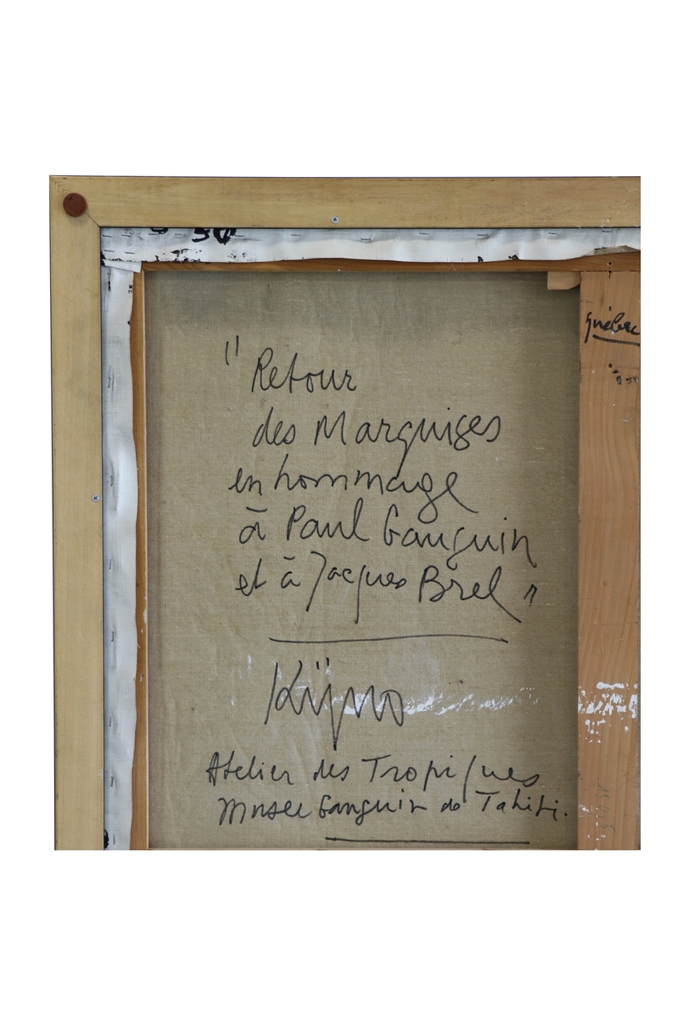 30
Québec
"Retour
des Marquises
en hommage
à Paul Gauguin
et à Jacques Brel"
Kijno
Atelier des Tropiques
Musée Gauguin de Tahiti.